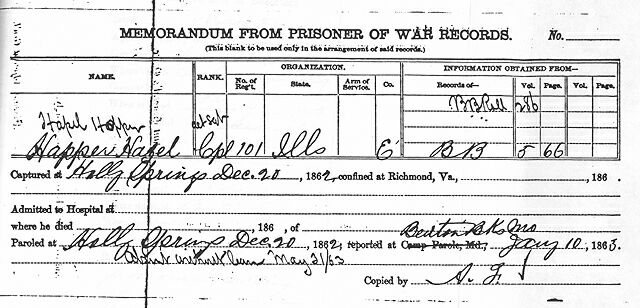 MEMORANDUM FROM PRISONER OF WAR RECORDS. No.
(This blank to be used only in the arrangement of said records.)
NAME. RANK. ORGANIZATION. INFORMATION OBTAINED FROM—
No. of Reg't. State. Arm of Service. Co. Records of— Vol. Page. Vol. Page.
Hopper BB Roll 286
Happer Hazel Cpl 101 Ills E BB 5 66
Captured at Holly Springs Dec. 20, 1862, confined at Richmond, Va., , 186 .
Admitted to Hospital at
where he died , 186 , of Benton Bks Mo
Paroled at Holly Springs Dec. 20 1862, reported at Camp Parole, Md., Jany 10, 1863.
May 31/63
Copied by A. F.